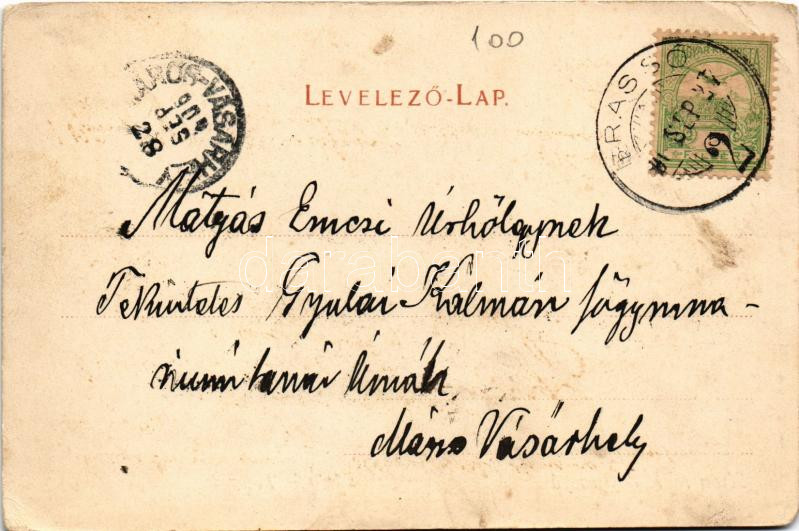 100
LEVELEZŐ-LAP.
MAROS-VÁSÁRH
906
SEP
28
BRASSÓ
SEP 27
Mátyás Emcsi Úrhölgynek
Tekintetes Gyulai Kálmán főgymna-
ziumi tanár Úrnák
Maros Vásárhely
darabanth